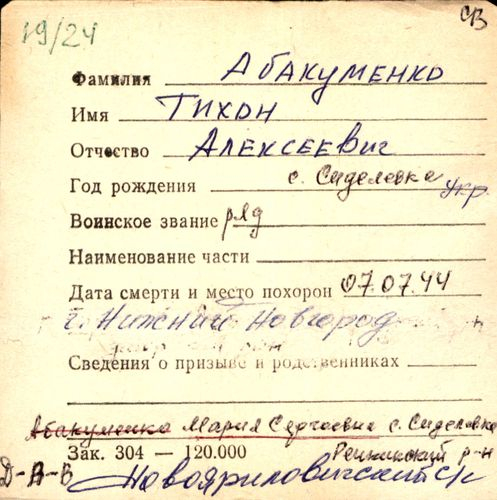 19/24
СВ
Фамилия Абакуменко
Имя Тихон
Отчество Алексеевич
Год рождения с. Сиделевке Укр
Воинское звание ряд
Наименование части
Дата смерти и место похорон 07.07.44
г. Нижний Новгород
Сведения о призыве и родственниках
Абакуменко Мария Сергеевна с. Сиделовка
Зак. 304 — 120.000 Репкинский р-н
Д-В-В Новояриловичский с/с